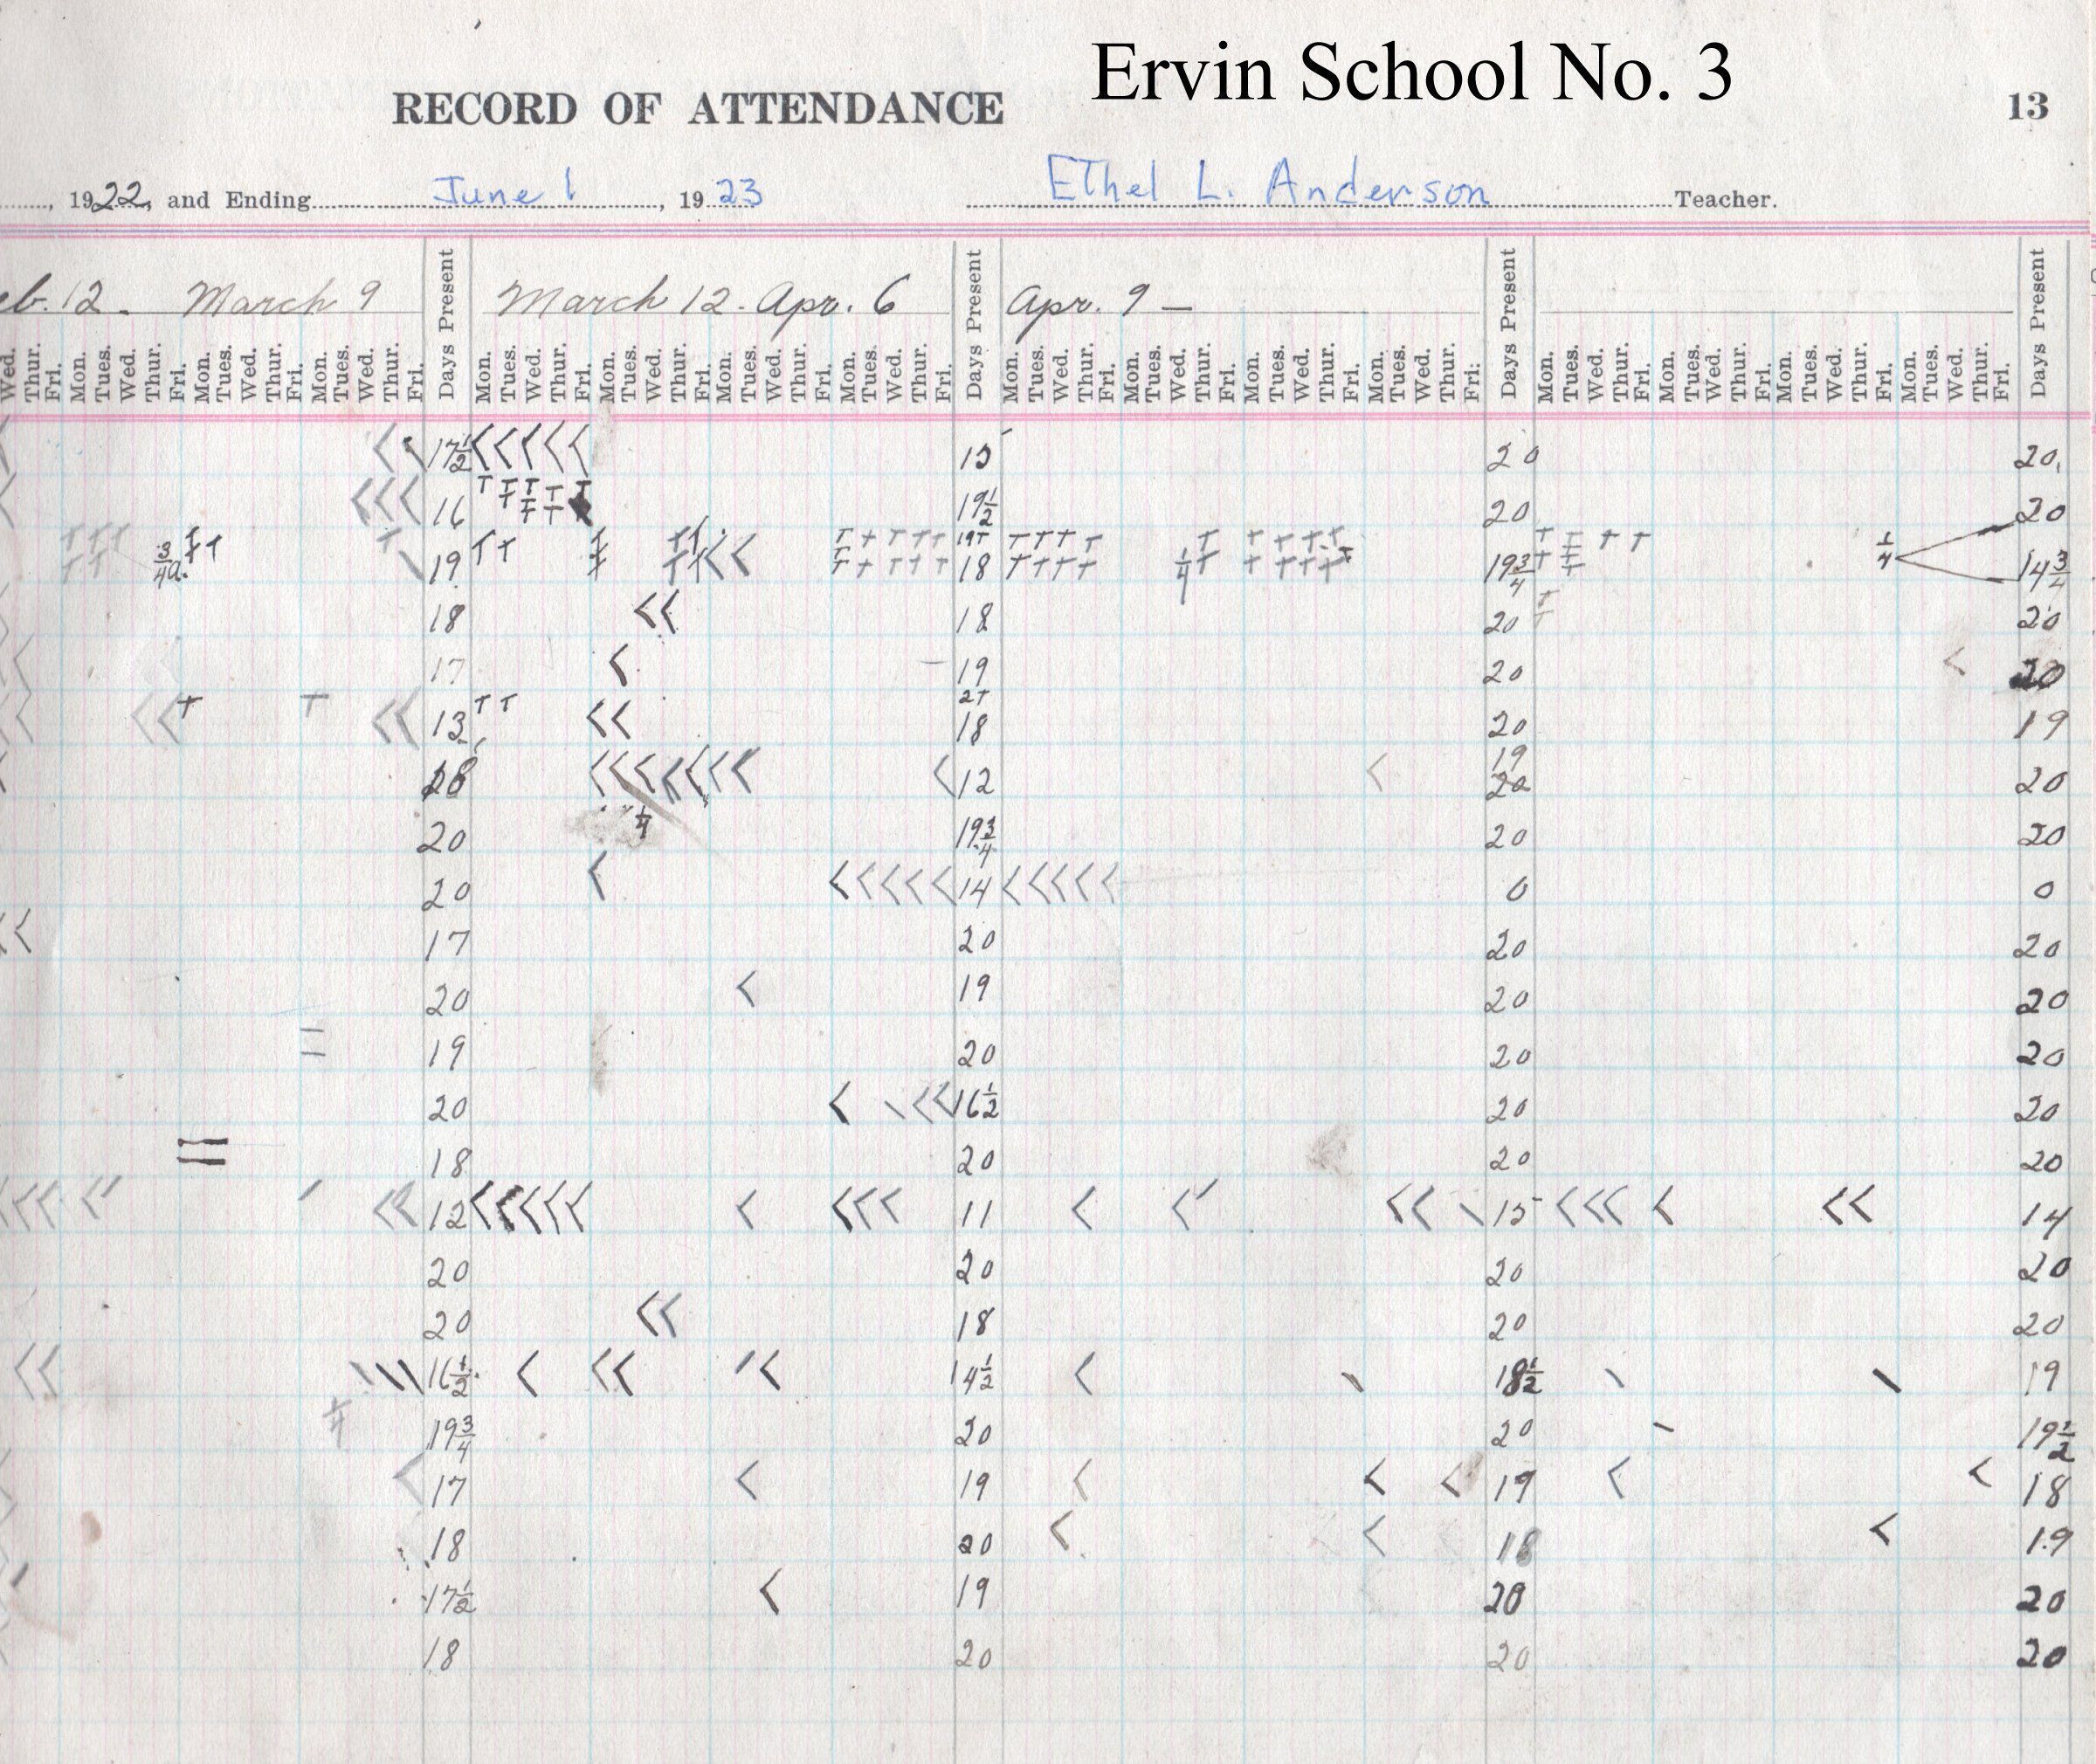 Ervin School No. 3
RECORD OF ATTENDANCE 13
, 1922, and Ending June 1, 1923 Ethel L. Anderson Teacher.
eb. 12 - March 9 Days Present March 12 - Apr. 6 Days Present Apr. 9 — Days Present Days Present
Wed. Thur. Fri. Mon. Tues. Wed. Thur. Fri. Mon. Tues. Wed. Thur. Fri. Mon. Tues. Wed. Thur. Fri. Mon. Tues. Wed. Thur. Fri. Mon. Tues. Wed. Thur. Fri. Mon. Tues. Wed. Thur. Fri. Mon. Tues. Wed. Thur. Fri. Mon. Tues. Wed. Thur. Fri. Mon. Tues. Wed. Thur. Fri. Mon. Tues. Wed. Thur. Fri. Mon. Tues. Wed. Thur. Fri: Mon. Tues. Wed. Thur. Fri. Mon. Tues. Wed. Thur. Fri. Mon. Tues. Wed. Thur. Fri. Mon. Tues. Wed. Thur. Fri.
17½ 15 20 20
16 19½ 20 20
19 19T 18 19¾ ¼ 14¾
18 18 20 20
17 19 20 20
13 2T 18 20 19
18 12 19 20 20
20 ¼ 19¾ 20 20
20 14 0 0
17 20 20 20
20 19 20 20
19 20 20 20
20 16½ 20 20
18 20 20 20
12 11 15 14
20 20 20 20
20 18 20 20
16½ 14½ 18½ 19
19¾ 20 20 19½
17 19 19 18
18 20 18 19
17½ 19 20 20
18 20 20 20